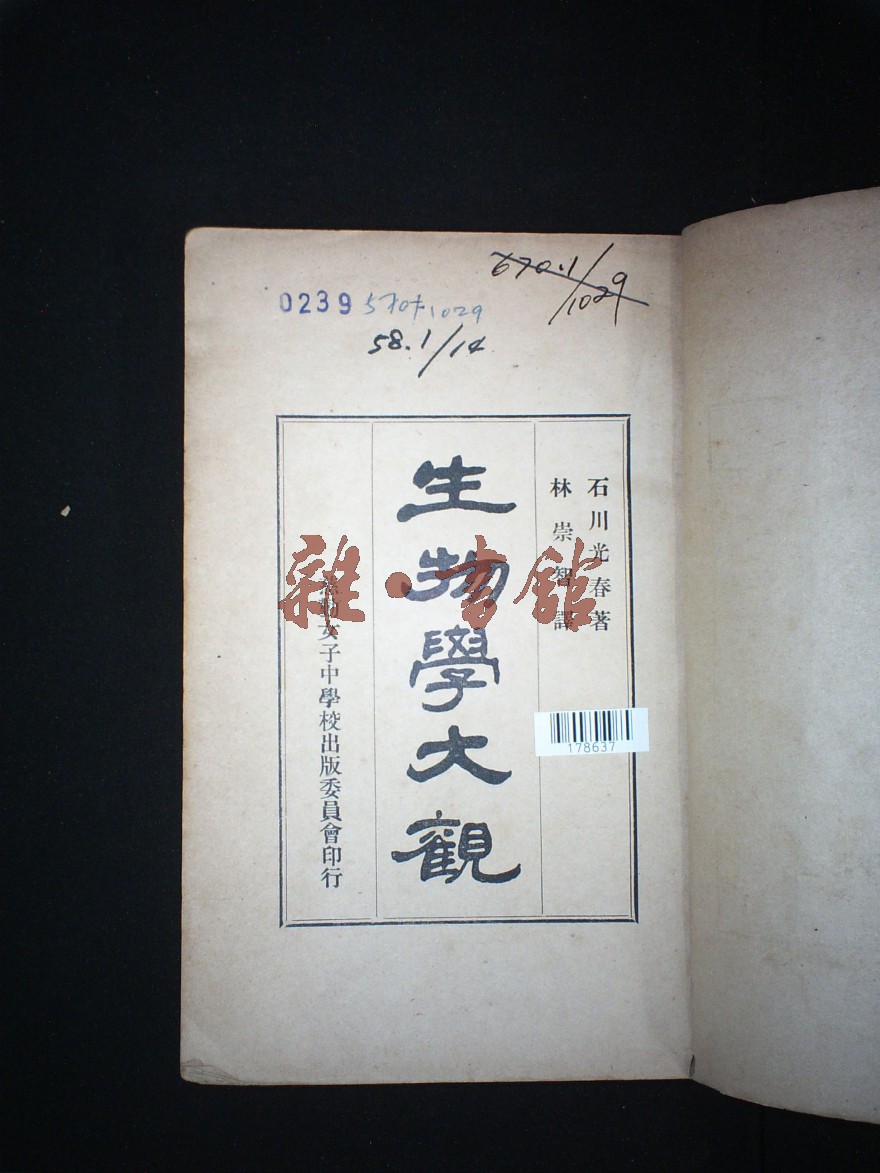 670.1/1029
0239
58.1/14
石川光春著
林崇智譯
生物學大觀
女子中學校出版委員會印行
178637
雜·書館